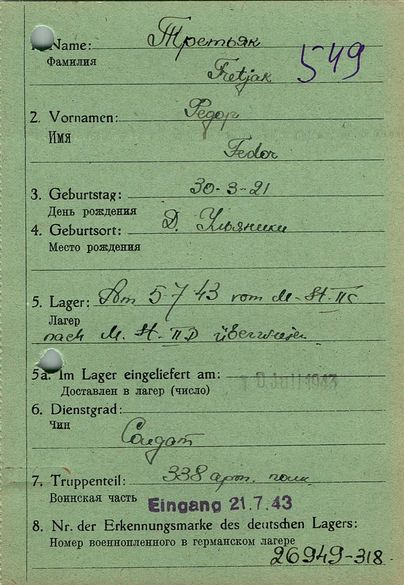 1. Name: Третьяк
Фамилия
Fretjak 549
2. Vornamen: Федор
Имя
Fedor
3. Geburtstag: 30-3-21
День рождения
4. Geburtsort: Д. Ульяники
Место рождения
5. Lager: Am 5 7 43 vom M-St. II C
Лагер
nach M. St. II D überwiesen
5a. Im Lager eingeliefert am: Juli 1943
Доставлен в лагер (число)
6. Dienstgrad:
Чин
Солдат
7. Truppenteil: 338 арт. полк
Воинская часть Eingang 21.7.43
8. Nr. der Erkennungsmarke des deutschen Lagers:
Номер военнопленного в германском лагере
26949-318